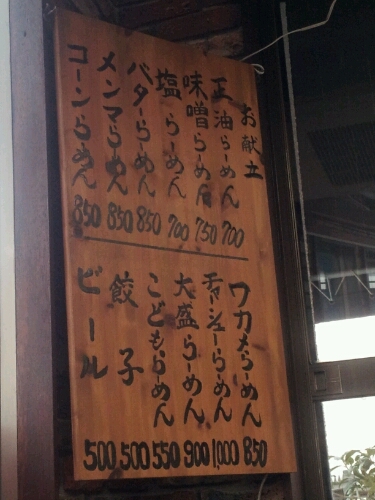 お献立
正油らーめん 700
味噌らーめん 750
塩らーめん 700
バターらーめん 850
メンマらーめん 850
コーンらーめん 850
ワカメらーめん 850
チャーシューらーめん 1,000
大盛らーめん 900
こどもらーめん 550
餃子 500
ビール 500